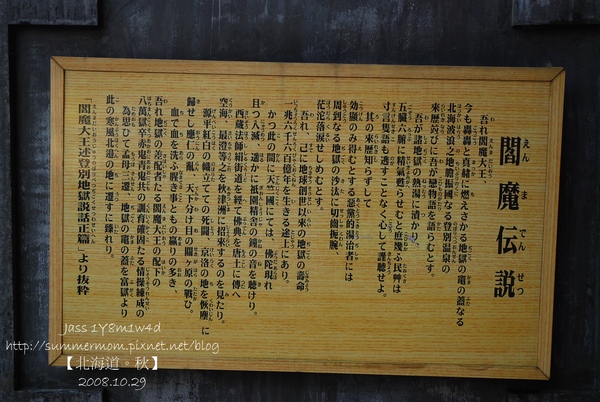 閻魔伝説
えんまでんせつ
吾れ閻魔大王、
今も轟轟と真赭に燃えさかる地獄の竈の蓋なる
北海波浪ぐ地膽節國なる登別温泉の
来歴竝びに吾が戀物語を語らむとす。
吾が諸地獄の熱湯に漬かり
五臓六腑に精氣甦らせむと庶幾ふ民艸は
寸言隻語も逃すことなく心して謹聴せよ。
其の来歴知らずして
効顕のみ得むとする惡業的湯治者には
周到なる地獄の沙汰に切歯扼腕、
茫沱落涙せしめむとす。
吾れ、已に地球創世以来の地獄の壽命
一兆六千六百億年を生きる途上にあり。
かつ此の間に天竺國にては、佛陀現れ
且つ入滅、遥かに祇園精舎の鐘の音を聴けり。
西蔵法師絹街道を經て佛典を唐土に傳へ
空海、最澄等之を秋津洲に招来するのを見たり。
源平紅白の幟立てての死闘、京洛の地を灰塵に
歸せし應仁の亂、天下分け目の關ヶ原の戰ひ。
血で血を洗ふ腥き事どもの餘りの多き、
吾れ地獄の支配者たる閻魔の配下の
八萬獄卒赤靑鬼達の調育確固たる情操練成の
為思ひて孟母三遷、地獄の竈の蓋を富獄より
此の寒風北邊の地に遷すに踌れり。
「閻魔大王述登別地獄説話正篇」より抜粋
jass 1Y8m1w4d
http://summermom.pixnet.net/blog
【北海道。秋】
2008.10.29